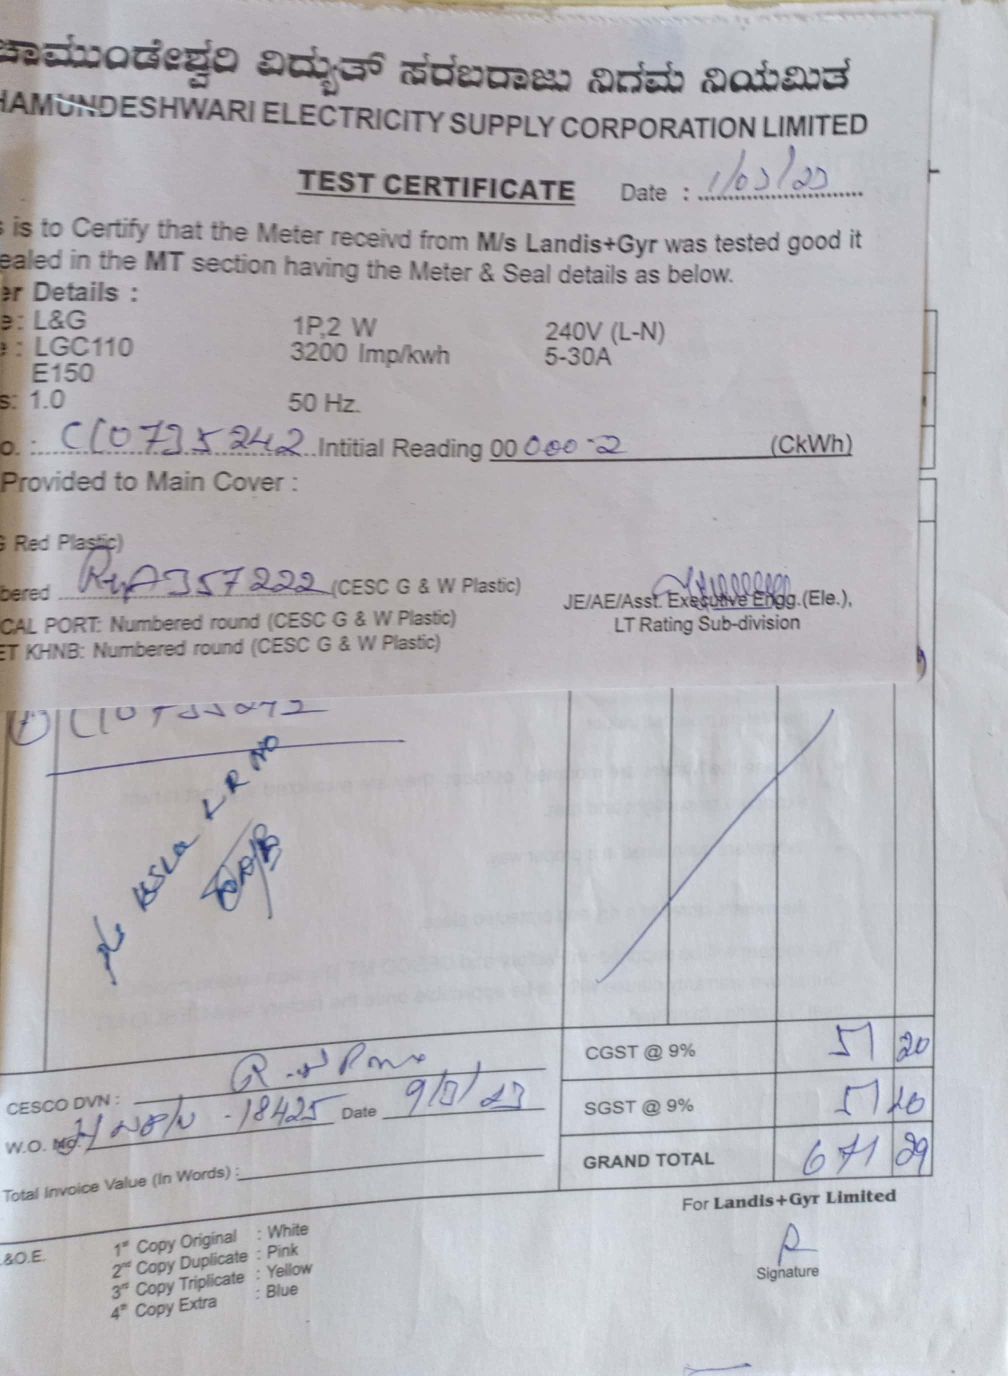 ಚಾಮುಂಡೇಶ್ವರಿ ವಿದ್ಯುತ್ ಸರಬರಾಜು ನಿಗಮ ನಿಯಮಿತ
HAMUNDESHWARI ELECTRICITY SUPPLY CORPORATION LIMITED
TEST CERTIFICATE Date : 1/03/23
s is to Certify that the Meter receivd from M/s Landis+Gyr was tested good it
ealed in the MT section having the Meter & Seal details as below.
er Details :
e: L&G 1P,2 W 240V (L-N)
e : LGC110 3200 Imp/kwh 5-30A
E150
s: 1.0 50 Hz.
o. : C10735242 Intitial Reading 00 000.2 (CkWh)
Provided to Main Cover :
G Red Plastic)
bered 357222 (CESC G & W Plastic)
JE/AE/Asst. Executive Engg.(Ele.),
CAL PORT: Numbered round (CESC G & W Plastic) LT Rating Sub-division
ET KHNB: Numbered round (CESC G & W Plastic)
LR NO
CGST @ 9% 51 20
CESCO DVN :
SGST @ 9% 51 20
W.O. No. -18425 Date 9/3/23
GRAND TOTAL 671 29
Total Invoice Value (In Words) :
For Landis+Gyr Limited
&O.E. 1st Copy Original : White
2nd Copy Duplicate : Pink
3rd Copy Triplicate : Yellow
4th Copy Extra : Blue
Signature